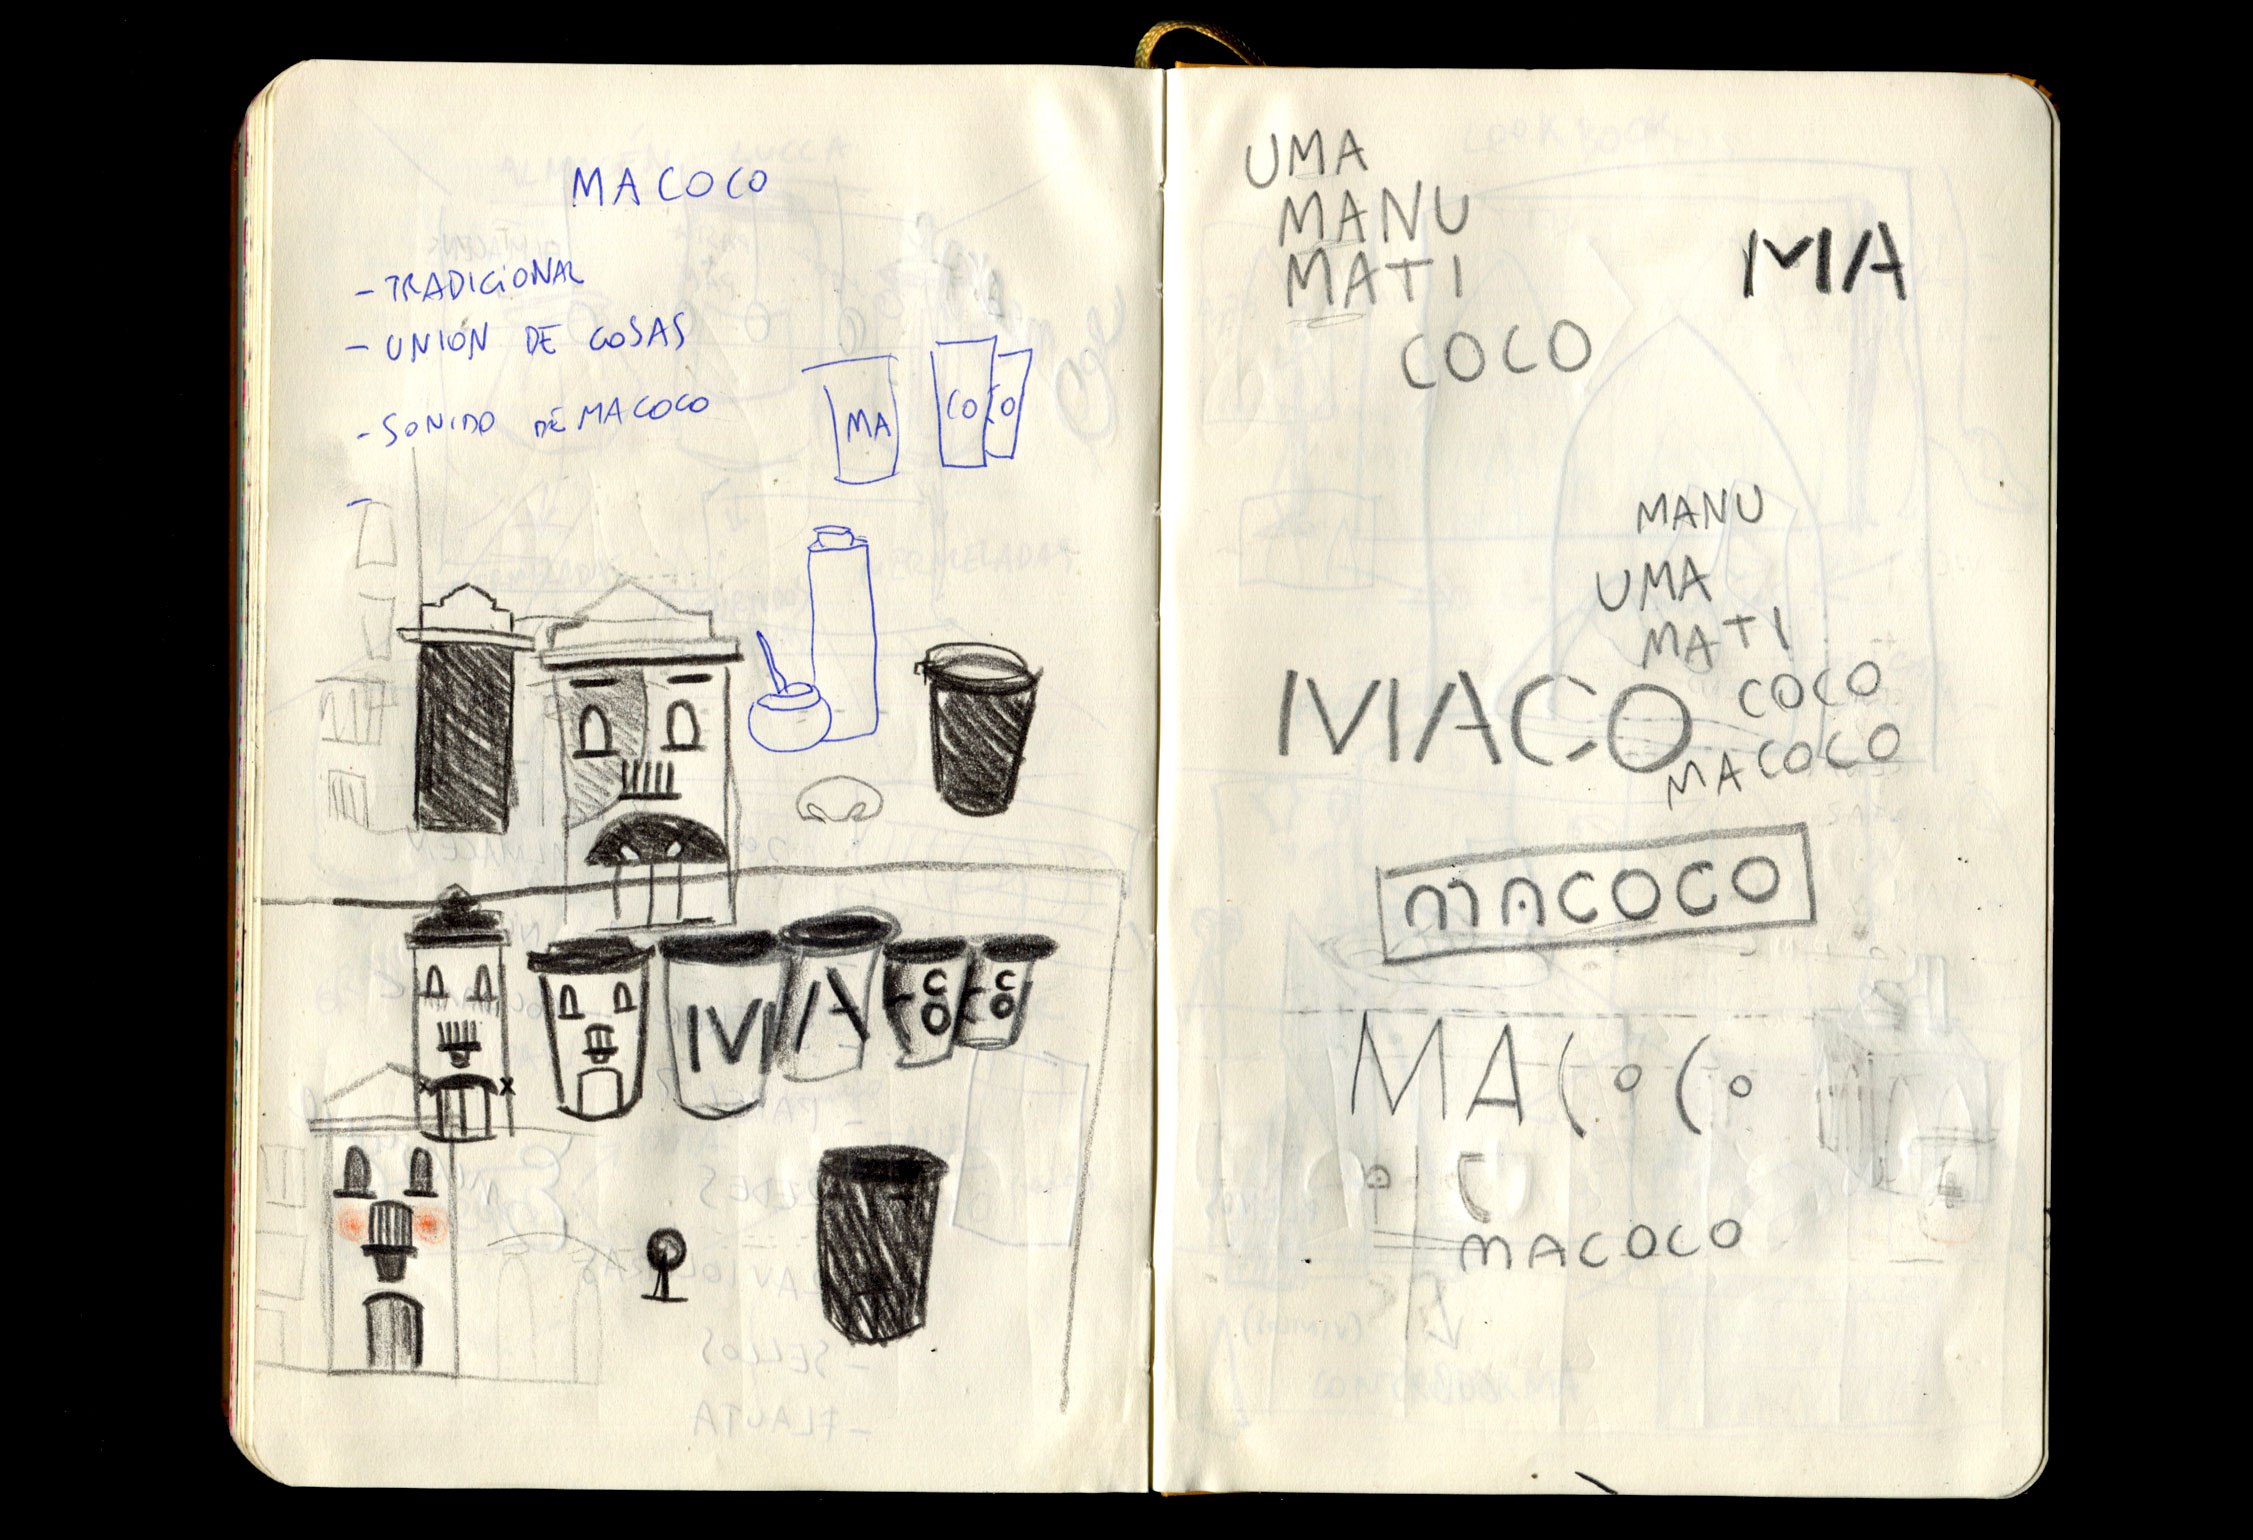 MACOCO
- TRADICIONAL
- UNIÓN DE COSAS
- SONIDO DE MACOCO
-
MA CO CO
MA CO CO
UMA
MANU
MATI
COCO
MA
MANU
UMA
MATI
COCO
MACO
MACOCO
MACOCO
MACOCO
MACOCO